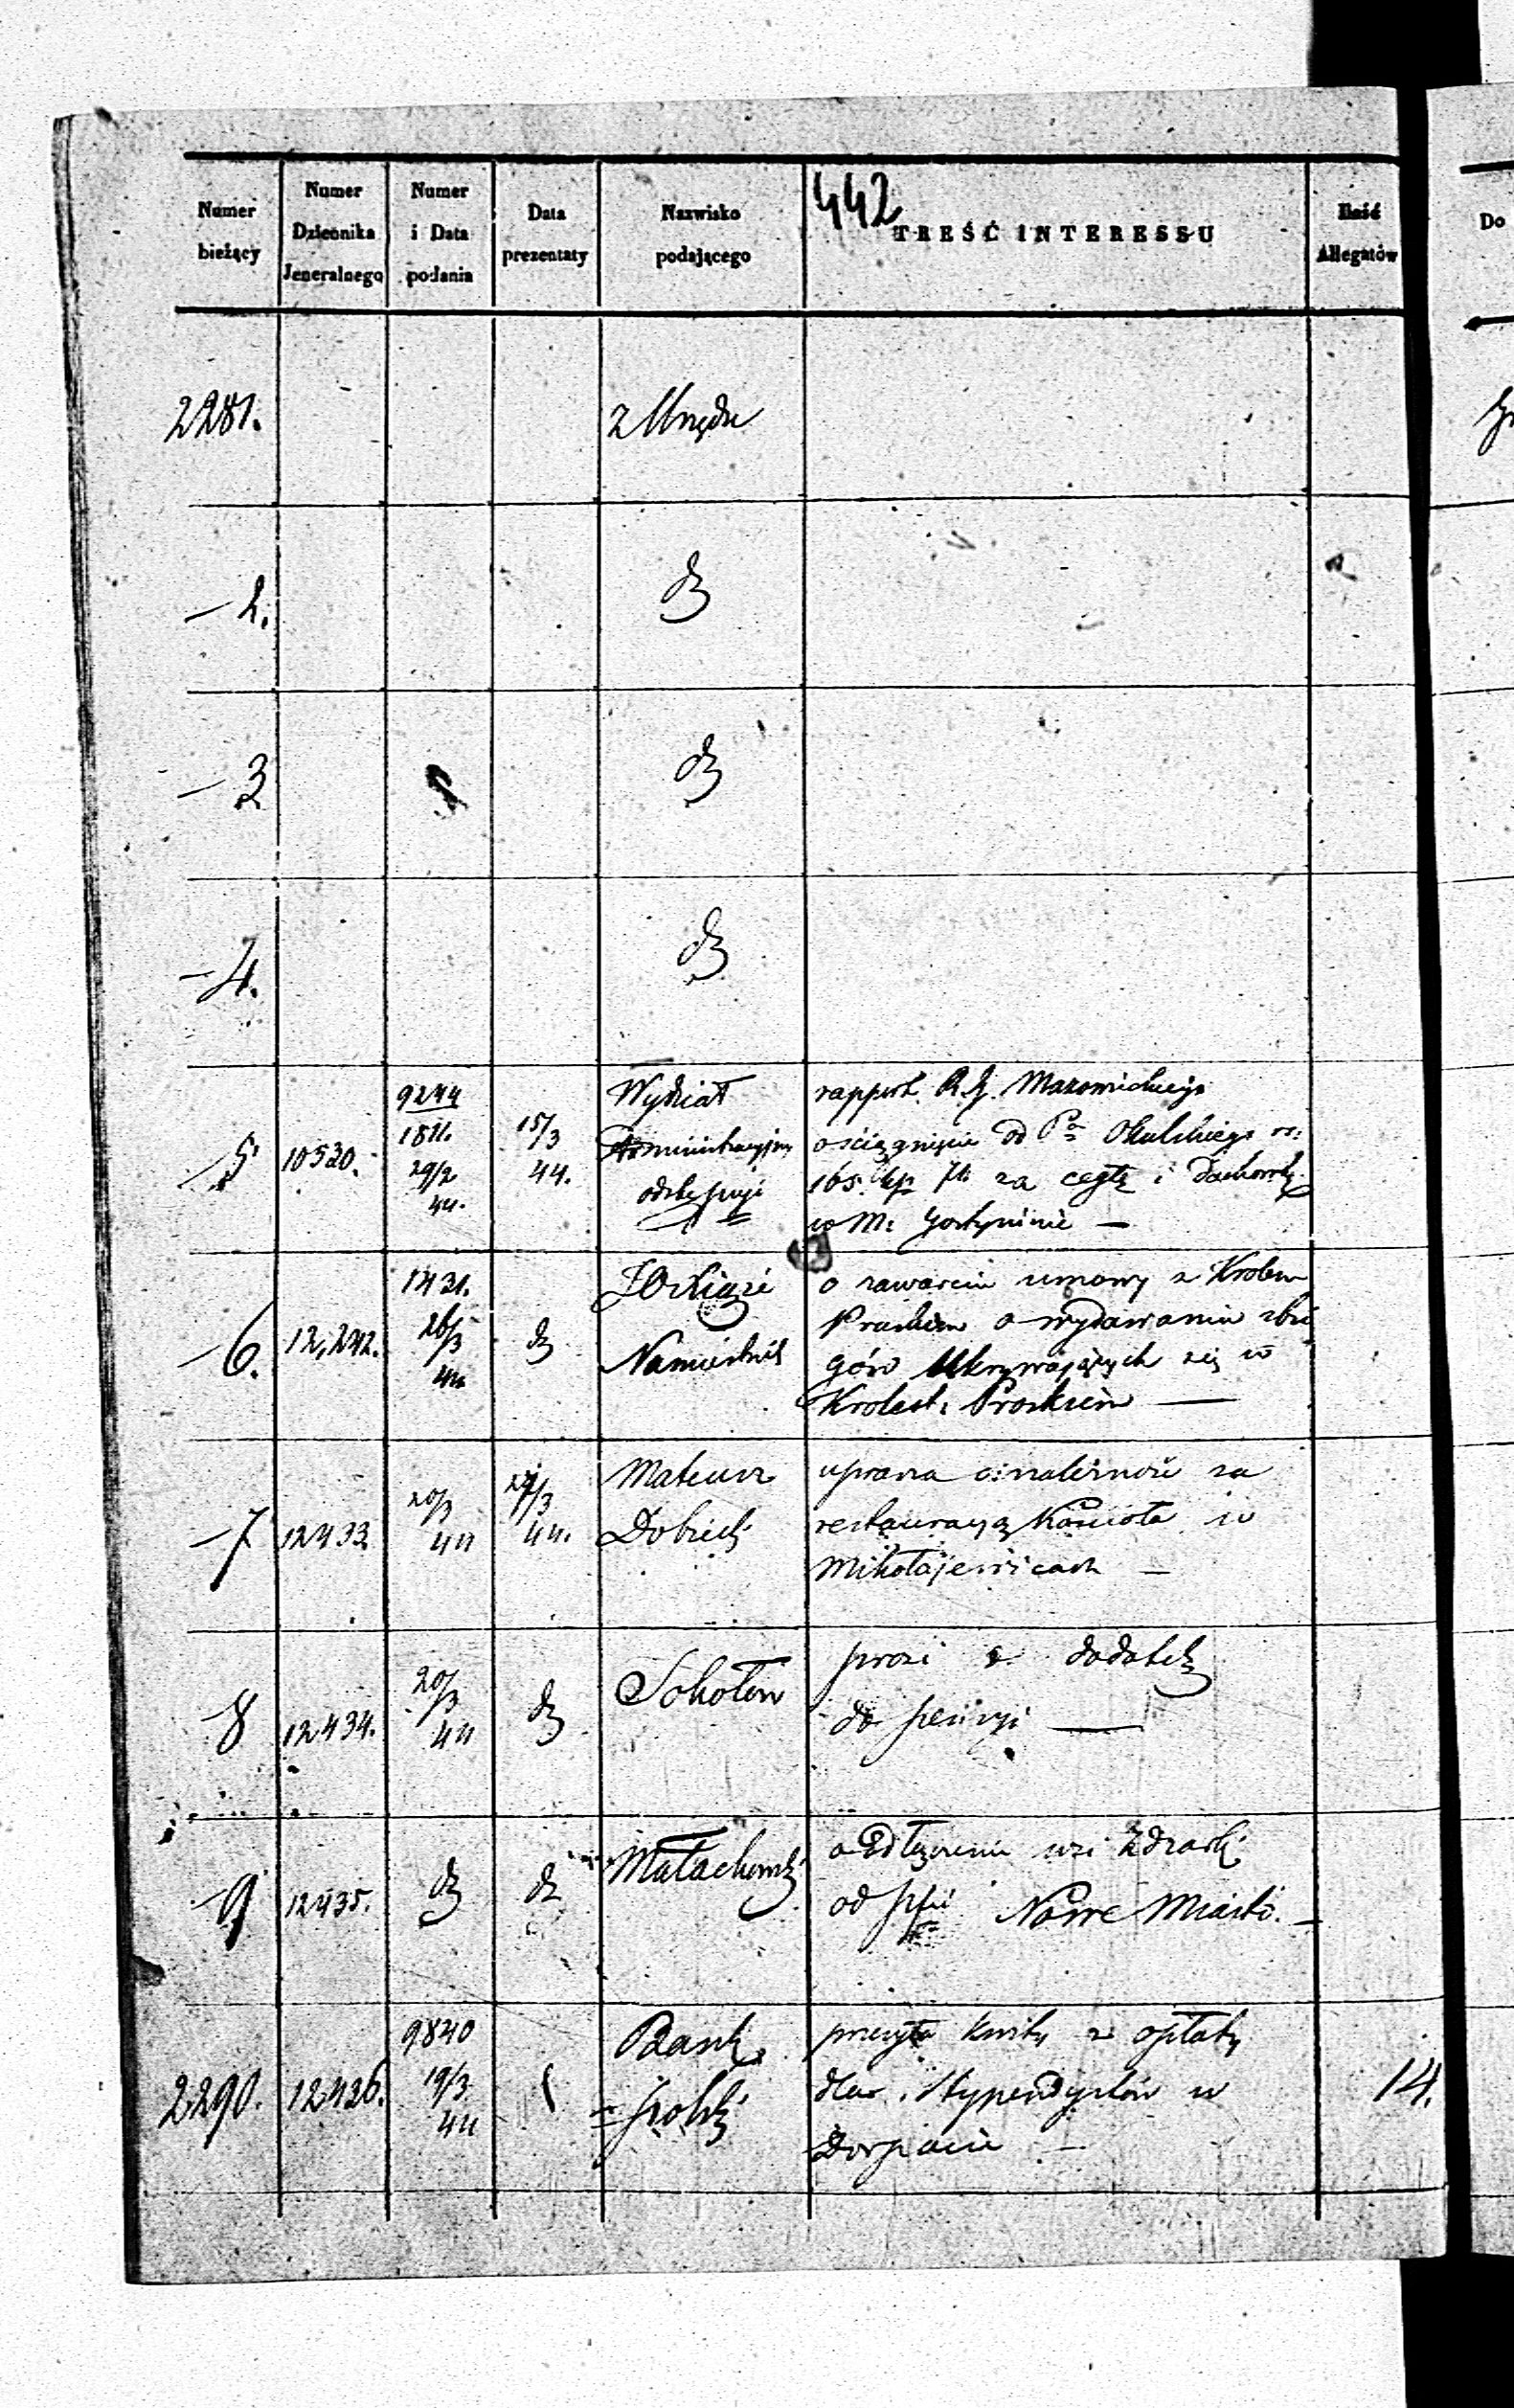 442
Numer bieżący
Numer Dziennika Jeneralnego
Numer i Data podania
Data prezentaty
Nazwisko podającego
TREŚĆ INTERESSU
Ilość Allegatów
Do
2281.
z Urzędu
— 2.
dº
— 3
dº
— 4.
dº
— 5
10520.
9244
1811.
29/2
44.
15/3
44.
Wydział
Administracyjny
odstępuje
rapport R. G. Mazowieckiego
o ściągnięcie od Pª Okulskiego rs:
165 kp 71 za cegłę i Dachówkę
w M: Gostyninie —
— 6.
12,242.
1431.
26/3
44
dº
JO Xiąże
Namiestnik
o zawarciu umowy z Krolem
Pruskim o wydawanie zbie
gów Ukrywających się w
Krolest: Pruskiem —
— 7
12433
20/3
44
27/3
44.
Mateusz
Dobrecki
uprasza o: należność za
restauracyą Kościoła w
Mikołajewicach —
— 8
12434.
20/3
44
dº
Sokołow
prosi o dodatek
do pensyi —
— 9
12435.
dº
dº
Małachowski
o odłączenie wsi Zdrarki
od pfii Nowe Miasto. —
2290.
12436.
9840
19/3
44
Bank
Polski
przesyła kwity z opłaty
dla Stypendystów w
Dorpacie —
14.